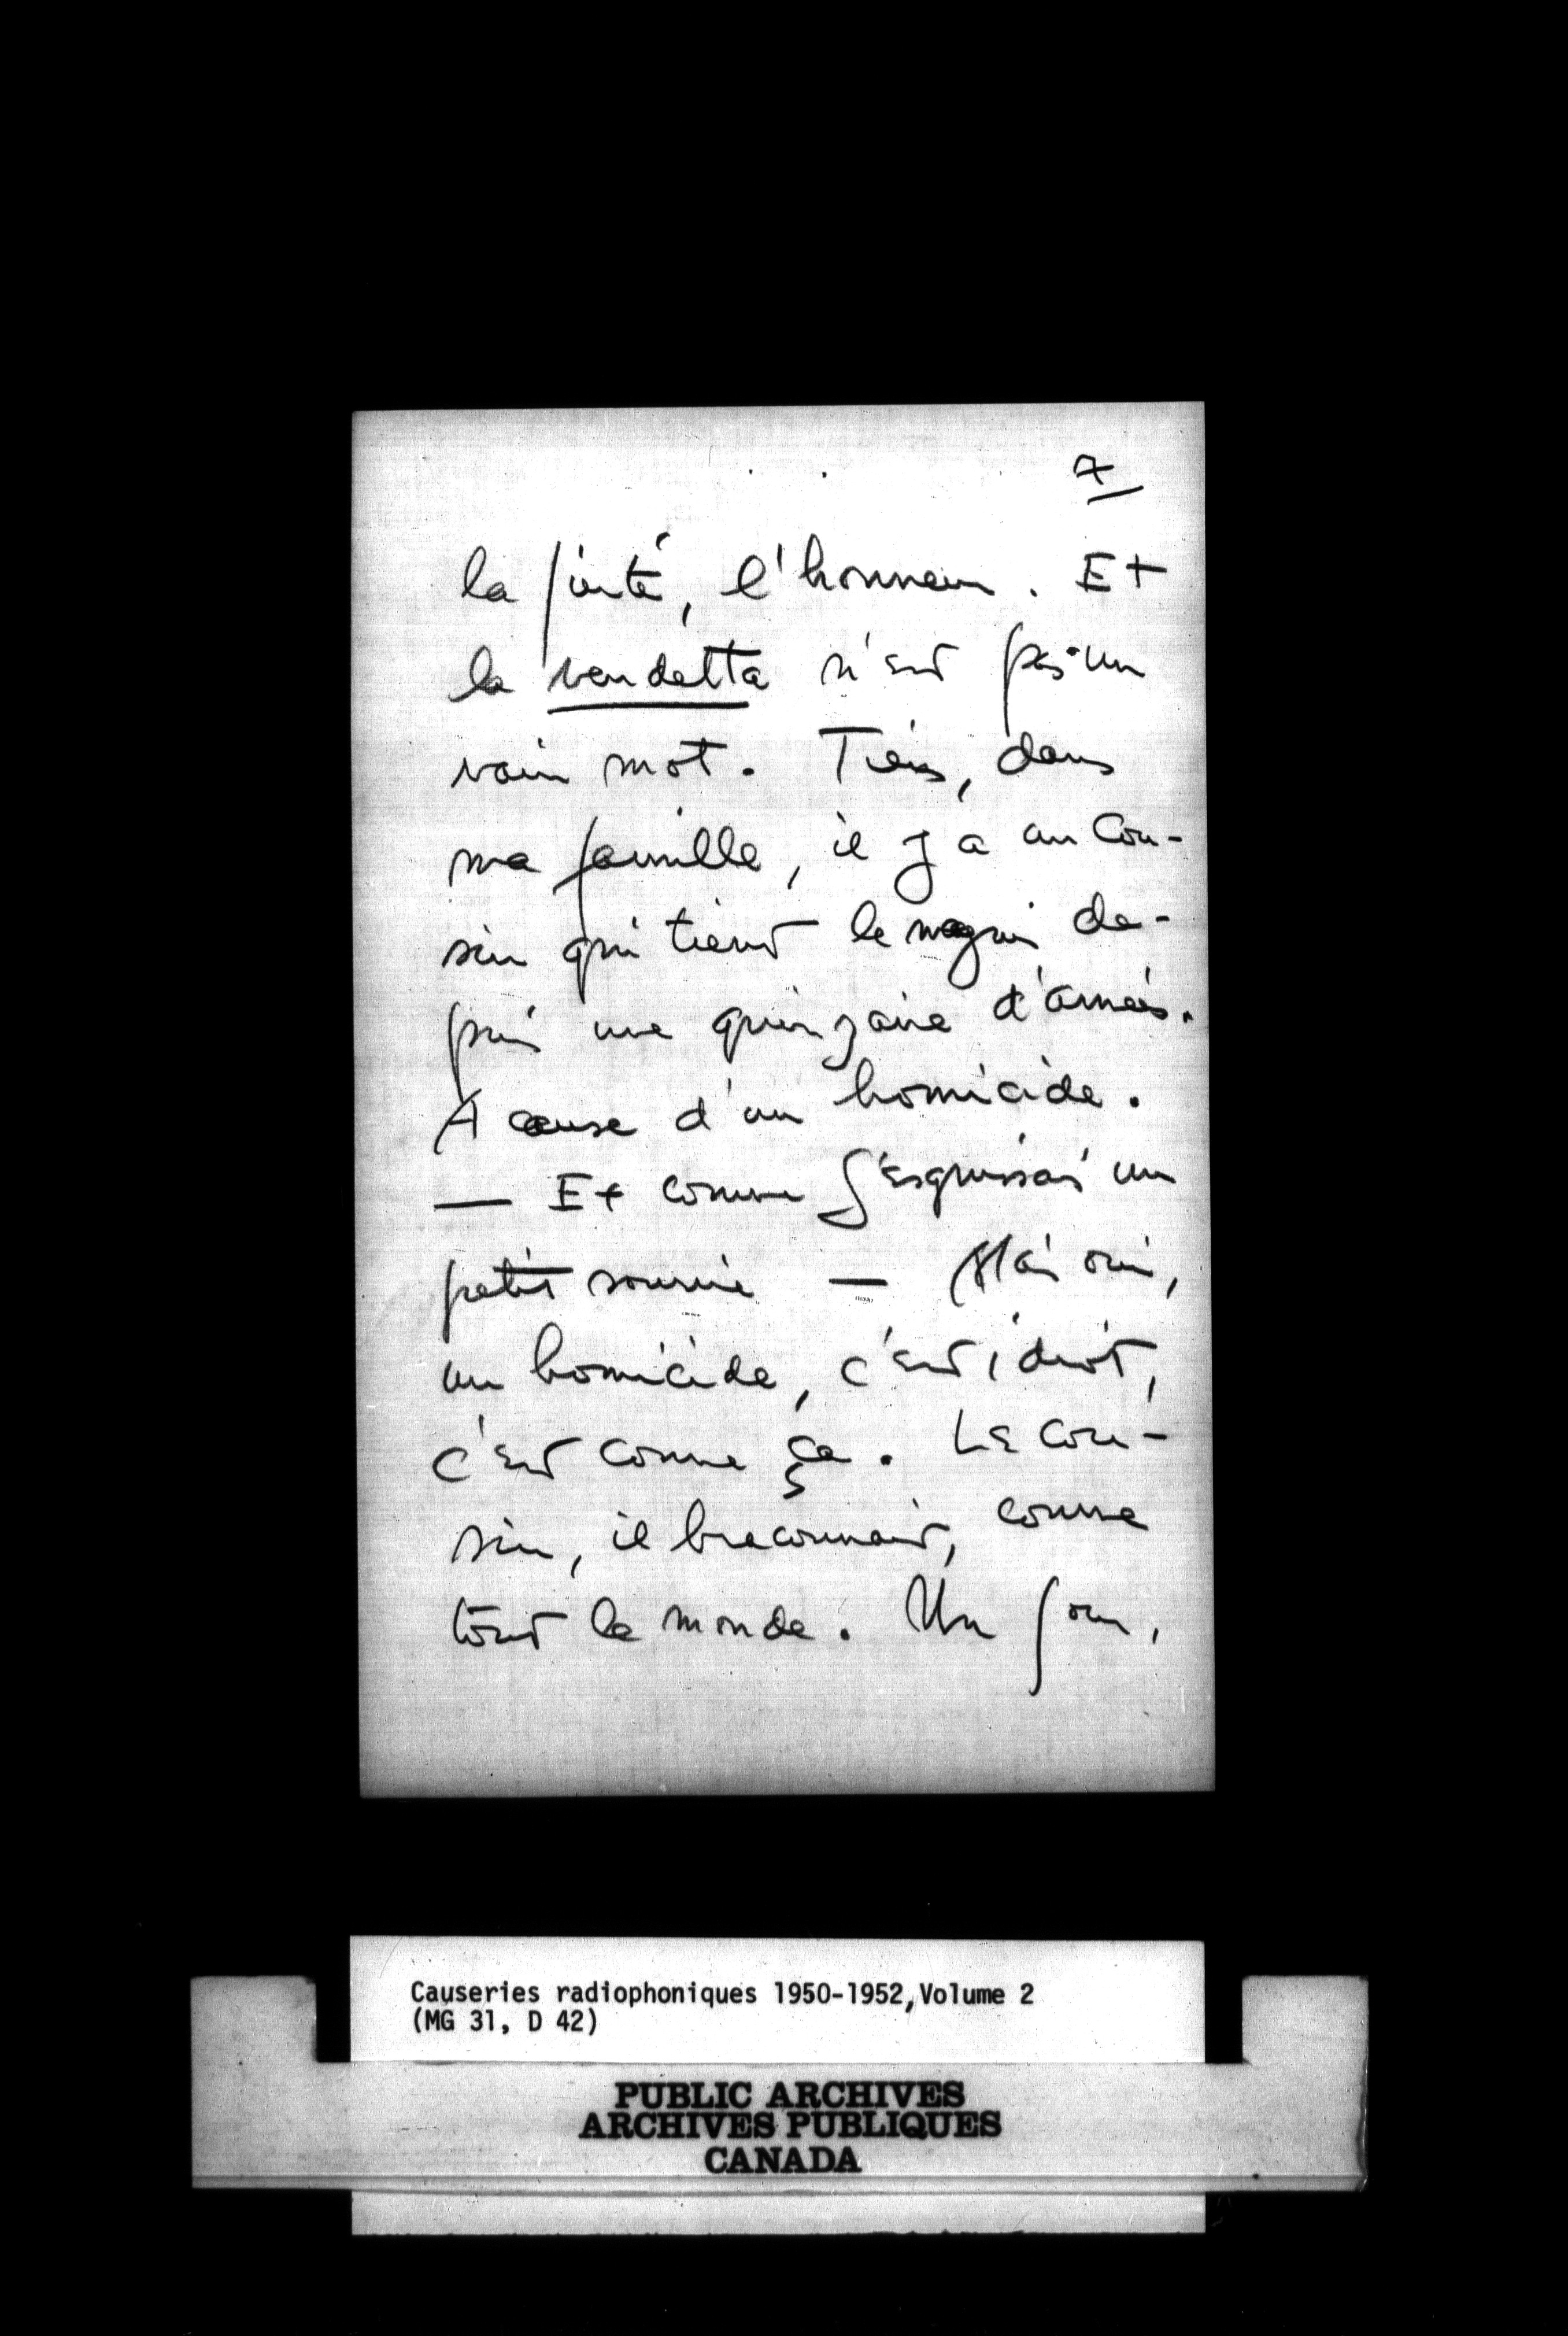 7
la fierté, l'honneur. Et
la vendetta n'est pas un
vain mot. Tiens, dans
ma famille, il y a un cou-
sin qui tient le maquis de-
puis une quinzaine d'années.
A cause d'un homicide.
— Et comme j'esquissais un
petit sourire — Mais oui,
un homicide, c'est idiot,
c'est comme ça. Le cou-
sin, il braconnait, comme
tout le monde. Un jour,
Causeries radiophoniques 1950-1952, Volume 2
(MG 31, D 42)
PUBLIC ARCHIVES
ARCHIVES PUBLIQUES
CANADA